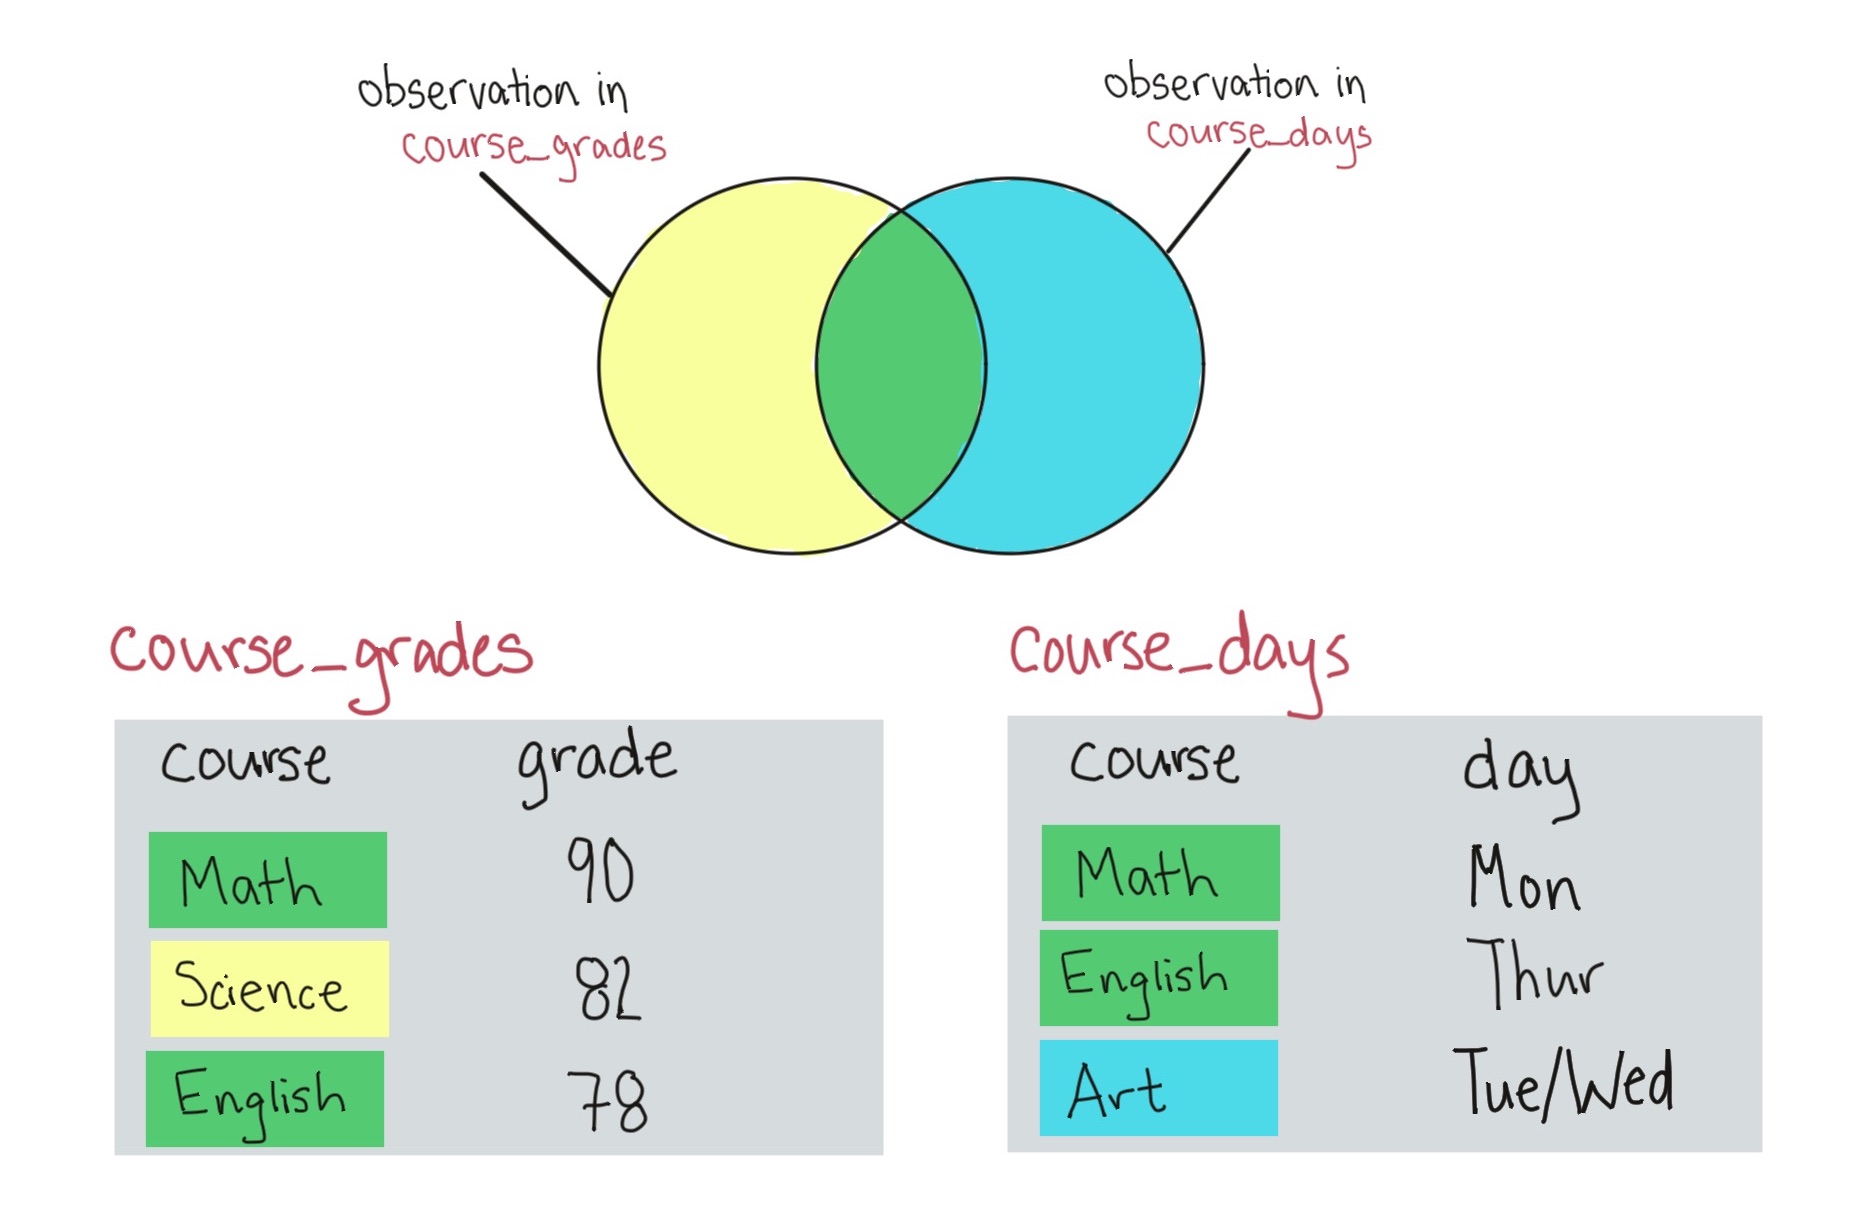 observation in
course_grades
observation in
course_days
course_grades
course grade
Math 90
Science 82
English 78
course_days
course day
Math Mon
English Thur
Art Tue/Wed